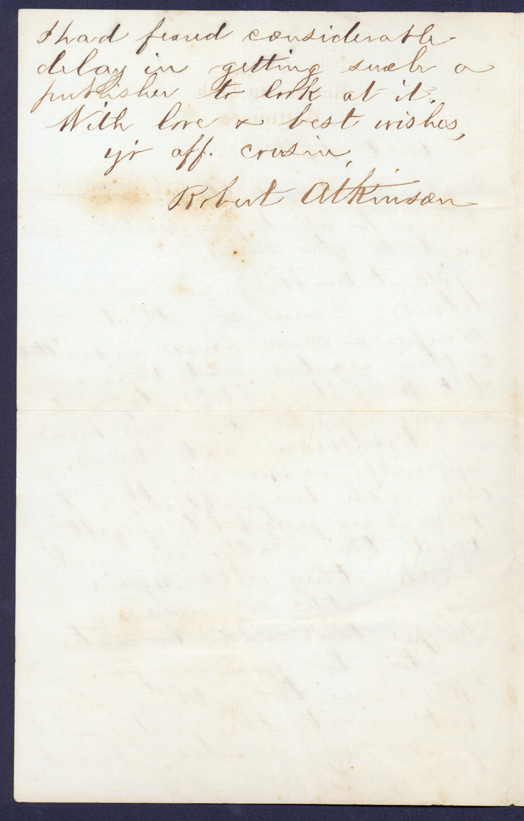 I had feared considerable
delay in getting such a
publisher to look at it.
With love & best wishes,
yr aff. cousin,
Robert Atkinson